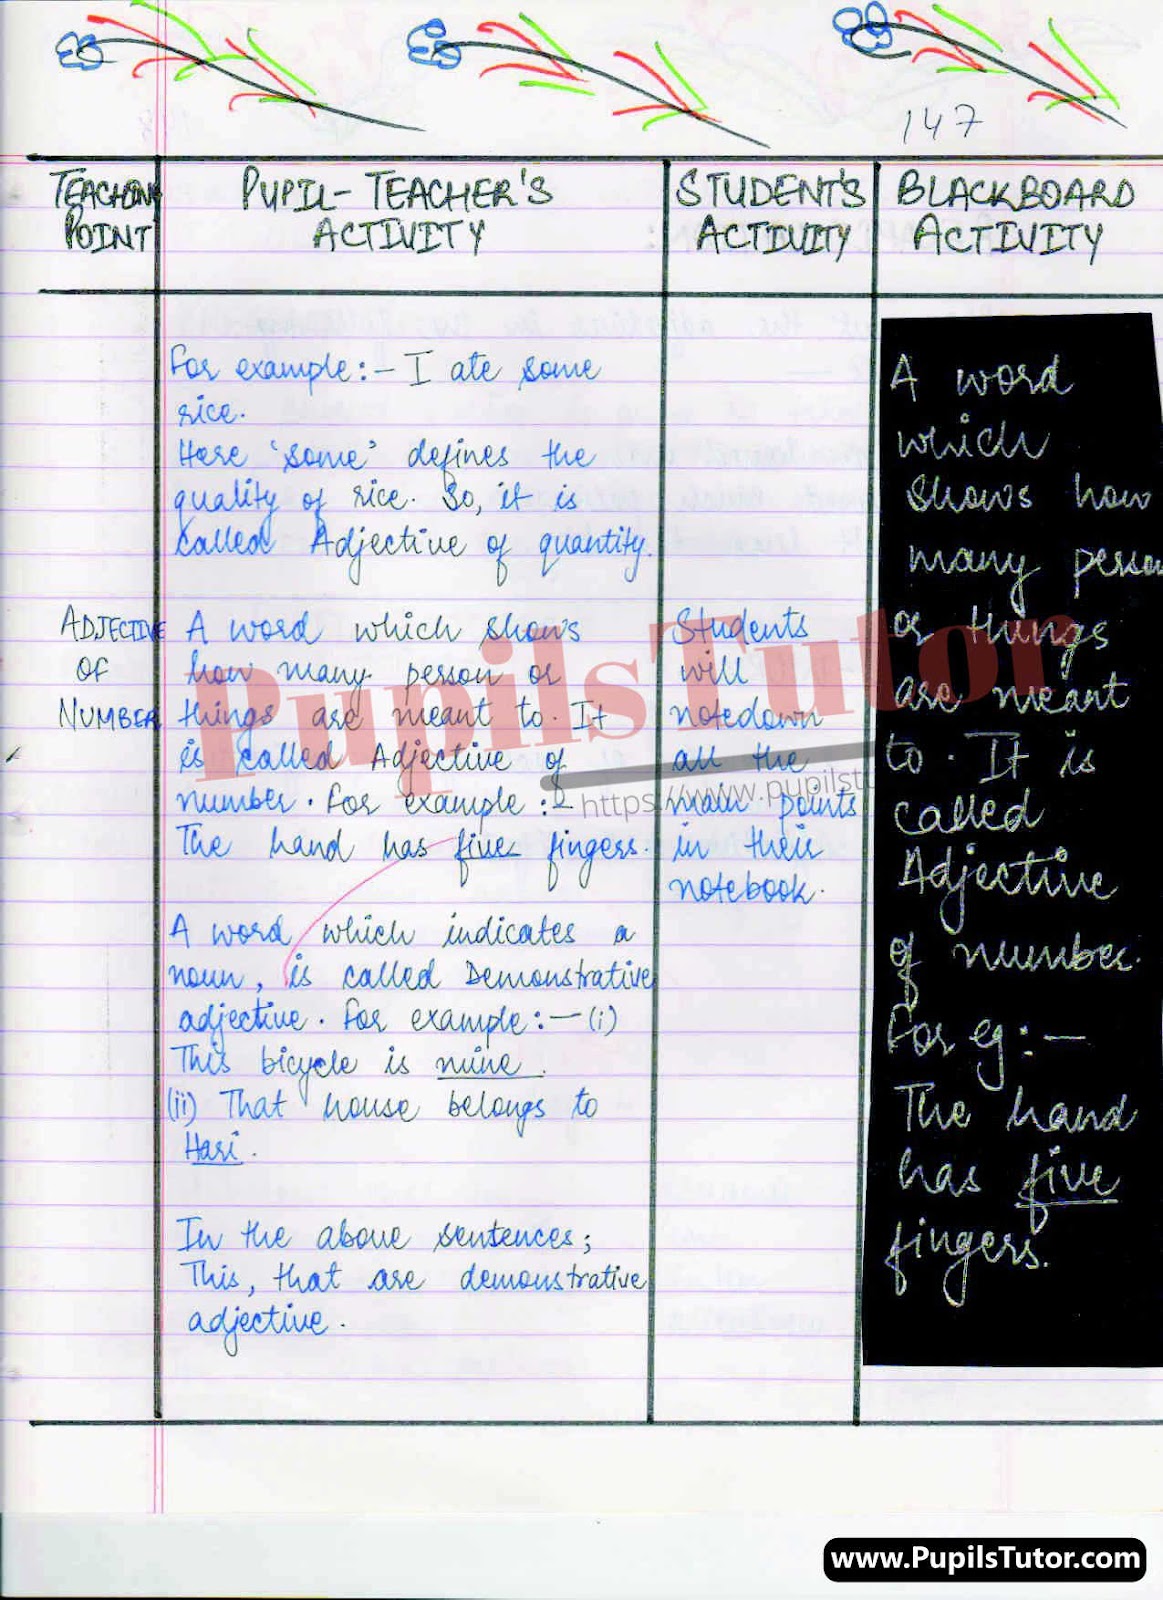 147
TEACHING
POINT
PUPIL-TEACHER'S
ACTIVITY
STUDENT'S
ACTIVITY
BLACKBOARD
ACTIVITY
For example:- I ate some
rice.
Here 'some' defines the
quality of rice. So, it is
called Adjective of quantity.
ADJECTIVE
OF
NUMBER
A word which shows
how many person or
things are meant to. It
is called Adjective of
number. For example:-
The hand has five fingers.
A word which indicates a
noun, is called Demonstrative
adjective. For example:- (i)
This bicycle is mine.
(ii) That house belongs to
Hari.
In the above sentences;
This, that are demonstrative
adjective.
Students
will
notedown
all the
main points
in their
notebook.
A word
which
shows how
many person
or things
are meant
to. It is
called
Adjective
of number.
For eg:-
The hand
has five
fingers.
PupilsTutor
https://www.pupilst
www.PupilsTutor.com